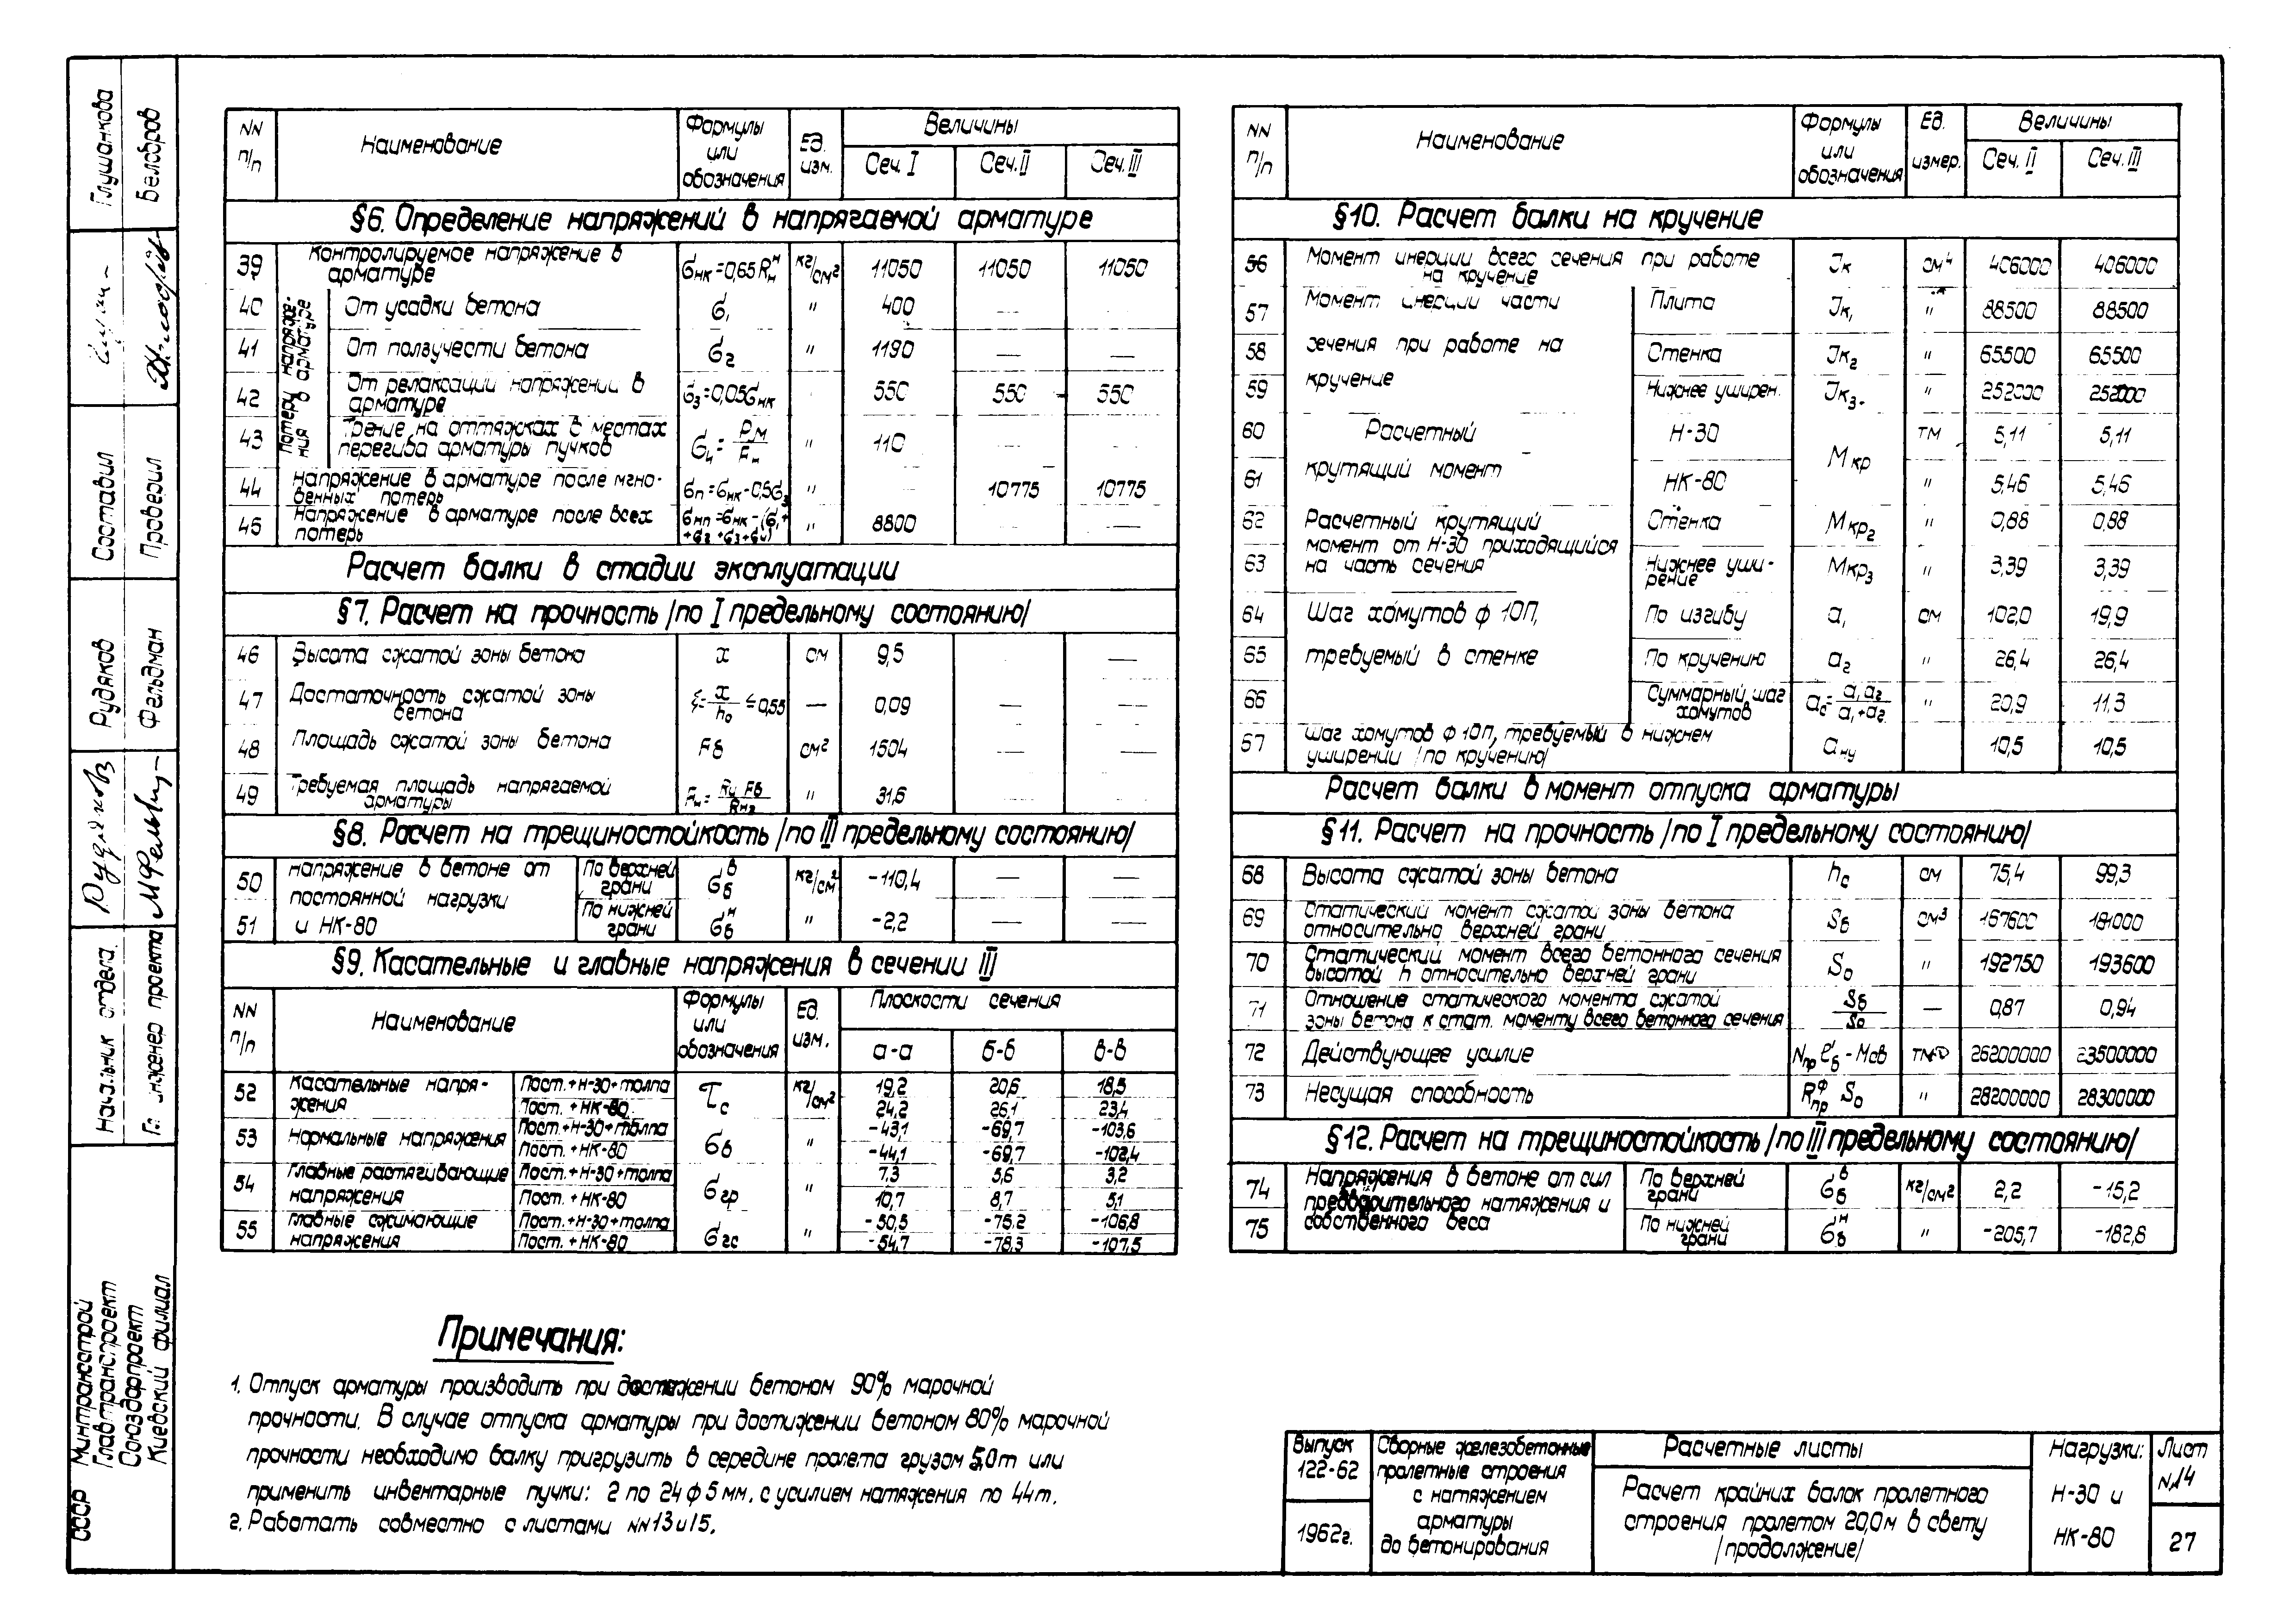 NN п/п | Наименование | Формулы или обозначения | Ед. изм. | Величины
Сеч. I | Сеч. II | Сеч. III
§6. Определение напряжений в напрягаемой арматуре
39 | Контролируемое напряжение в арматуре | σнк=0,65Rнᴴ | кг/см² | 11050 | 11050 | 11050
потеру напряжения в арматуре
40 | От усадки бетона | σ₁ | " | 400
41 | От ползучести бетона | σ₂ | " | 1190 | — | —
42 | От релаксации напряжений в арматуре | σ₃=0,05σнк | 550 | 550 | 550
43 | Трение на оттяжках в местах перегиба арматуры пучков | σ₄= | " | 110 | — | —
44 | Напряжение в арматуре после мгновенных потерь | σп=σнк-0,5σ₃ | " | 10775 | 10775
45 | Напряжение в арматуре после всех потерь | σнп=σнк-(σ₁+σ₂+σ₃+σ₄) | " | 8800 | — | —
Расчет балки в стадии эксплуатации
§7. Расчет на прочность /по I предельному состоянию/
46 | Высота сжатой зоны бетона | x | см | 9,5 | —
47 | Достаточность сжатой зоны бетона | ξ=x/h₀≤0,55 | — | 0,09 | — | —
48 | Площадь сжатой зоны бетона | Fб | см² | 1504 | — | —
49 | Требуемая площадь напрягаемой арматуры | Fн=Rи Fб/Rн₂ | " | 31,6
§8. Расчет на трещиностойкость /по III предельному состоянию/
напряжение в бетоне от постоянной нагрузки и НК-80
50 | По верхней грани | σбᴮ | кг/см² | -110,4 | — | —
51 | По нижней грани | σбᴴ | " | -2,2 | — | —
§9. Касательные и главные напряжения в сечении III
NN п/п | Наименование | Формулы или обозначения | Ед. изм. | Плоскости сечения
а-а | б-б | в-в
52 | Касательные напряжения | Пост.+Н-30+толпа | τс | кг/см² | 19,2 | 20,6 | 18,5
Пост.+НК-80 | 24,2 | 26,1 | 23,4
53 | Нормальные напряжения | Пост.+Н-30+толпа | σб | " | -43,1 | -69,7 | -103,6
Пост.+НК-80 | -44,1 | -69,7 | -102,4
54 | Главные растягивающие напряжения | Пост.+Н-30+толпа | σгр | " | 7,3 | 5,6 | 3,2
Пост.+НК-80 | 10,7 | 8,7 | 5,1
55 | Главные сжимающие напряжения | Пост.+Н-30+толпа | σгс | " | -50,5 | -75,2 | -106,8
Пост.+НК-80 | -54,7 | -78,3 | -107,5
NN п/п | Наименование | Формулы или обозначения | Ед. измер. | Величины
Сеч. II | Сеч. III
§10. Расчет балки на кручение
56 | Момент инерции всего сечения при работе на кручение | Jк | см⁴ | 406000 | 406000
Момент инерции части сечения при работе на кручение
57 | Плита | Jк₁ | " | 88500 | 88500
58 | Стенка | Jк₂ | " | 65500 | 65500
59 | Нижнее уширен. | Jк₃ | " | 252000 | 252000
Расчетный крутящий момент | Мкр
60 | Н-30 | тм | 5,11 | 5,11
61 | НК-80 | " | 5,46 | 5,46
Расчетный крутящий момент от Н-30 приходящийся на часть сечения
62 | Стенка | Мкр₂ | " | 0,88 | 0,88
63 | Нижнее уширение | Мкр₃ | " | 3,39 | 3,39
Шаг хомутов ф 10П, требуемый в стенке
64 | По изгибу | a₁ | см | 102,0 | 19,9
65 | По кручению | a₂ | " | 26,4 | 26,4
66 | Суммарный шаг хомутов | aс=a₁a₂/a₁+a₂ | " | 20,9 | 11,3
67 | Шаг хомутов ф 10П, требуемый в нижнем уширении /по кручению/ | aну | 10,5 | 10,5
Расчет балки в момент отпуска арматуры
§11. Расчет на прочность /по I предельному состоянию/
68 | Высота сжатой зоны бетона | hс | см | 75,4 | 99,3
69 | Статический момент сжатой зоны бетона относительно верхней грани | Sб | см³ | 167600 | 181000
70 | Статический момент всего бетонного сечения высотой h относительно верхней грани | S₀ | " | 192750 | 193600
71 | Отношение статического момента сжатой зоны бетона к стат. моменту всего бетонного сечения | Sб/S₀ | — | 0,87 | 0,94
72 | Действующее усилие | Nпр e'б - Мсв | 26200000 | 23500000
73 | Несущая способность | Rпрᶲ S₀ | " | 28200000 | 28300000
§12. Расчет на трещиностойкость /по III предельному состоянию/
Напряжения в бетоне от сил предварительного натяжения и собственного веса
74 | По верхней грани | σбᴮ | кг/см² | 2,2 | -15,2
75 | По нижней грани | σбᴴ | " | -205,7 | -182,8
Примечания:
1. Отпуск арматуры производить при достижении бетоном 90% марочной
прочности. В случае отпуска арматуры при достижении бетоном 80% марочной
прочности необходимо балку пригрузить в середине пролета грузом 5,0т или
применить инвентарные пучки: 2 по 24 ф 5 мм. с усилием натяжения по 44т.
2. Работать совместно с листами NN 13 и 15.
Выпуск 122-62
1962г.
Сборные железобетонные
пролетные строения
с натяжением
арматуры
до бетонирования
Расчетные листы
Расчет крайних балок пролетного
строения пролетом 20,0м в свету
/продолжение/
Нагрузки:
Н-30 и
НК-80
Лист
N14
27
Глушанкова
Белобров
Составил
Проверил
Рудяков
Фельдман
Начальник отдела
Гл. инженер проекта
СССР
Минтрансстрой
Главтранспроект
Союздорпроект
Киевский филиал